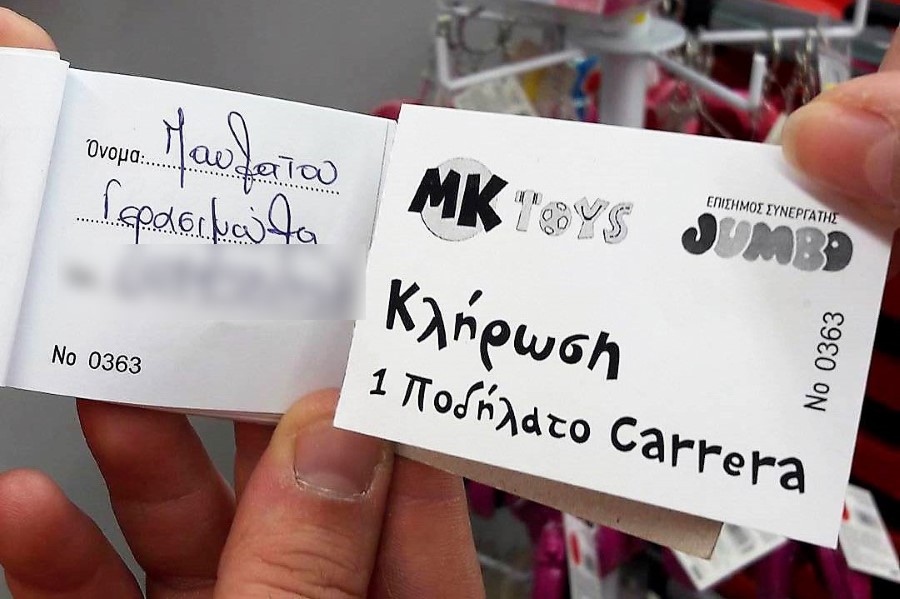 Όνομα: Μαυραΐτου
Γερασιμούλα
No 0363
MK TOYS
ΕΠΙΣΗΜΟΣ ΣΥΝΕΡΓΑΤΗΣ
JUMBO
Κλήρωση
1 Ποδήλατο Carrera
No 0363